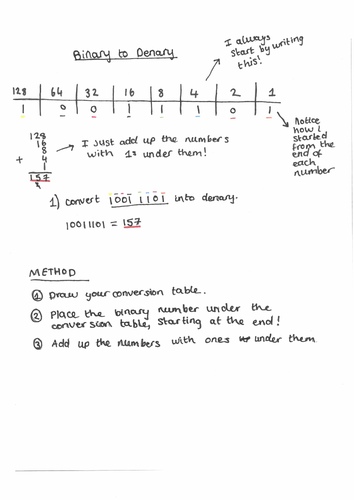 Binary to Denary
I always
start by writing
this!
128 | 64 | 32 | 16 | 8 | 4 | 2 | 1
1 | 0 | 0 | 1 | 1 | 1 | 0 | 1
128
16
8
+ 4
1
157
2
I just add up the numbers
with 1s under them!
Notice
how I
started
from the
end of
each
number
1) convert 1001 1101 into denary.
10011101 = 157
METHOD
① Draw your conversion table.
② Place the binary number under the
conversion table, starting at the end!
③ Add up the numbers with ones under them